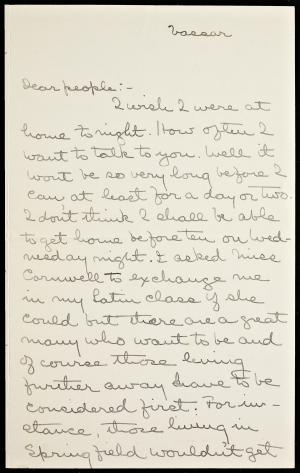 Vassar
Dear people:-
I wish I were at
home to night. How often I
want to talk to you. Well it
won't be so very long before I
can, at least for a day or two.
I don't think I shall be able
to get home before ten on Wed-
nesday night. I asked Miss
Cornwell to exchange me
in my Latin class if she
could but there are a great
many who want to be and
of course those living
further away have to be
considered first. For in-
stance, those living in
Springfield wouldn't get